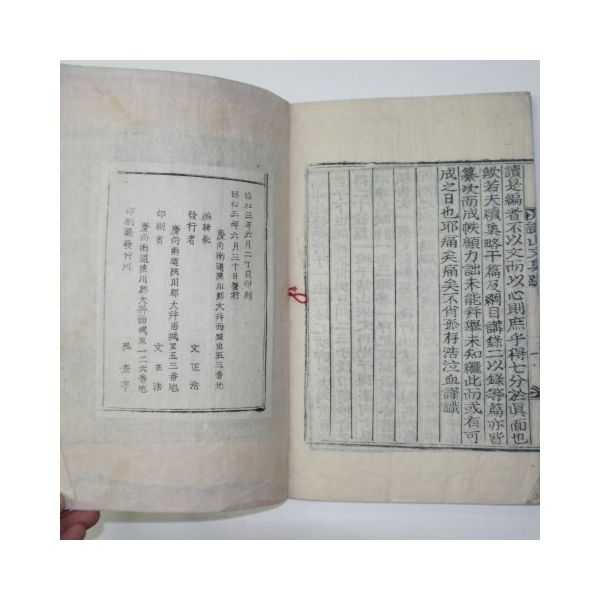 讀是編者不以文而以心則庶乎得七分於眞面也
歟若夫續集略干篇及綱目講錄二以錄等篇亦皆
纂次而成帙顧力詘未能幷擧未知繼此而或有可
成之日也耶痛矣痛矣不肖孤存浩泣血謹識
昭和三年六月二十日印刷
昭和三年六月三十日發行
慶尚南道陜川郡大幷面城里五三番地
編輯兼
發行者 文正浩
慶尚南道陜川郡大幷面城里五三番地
印刷者 文正法
慶尚南道陜川郡大幷面城里一二六番地
印刷兼發行所